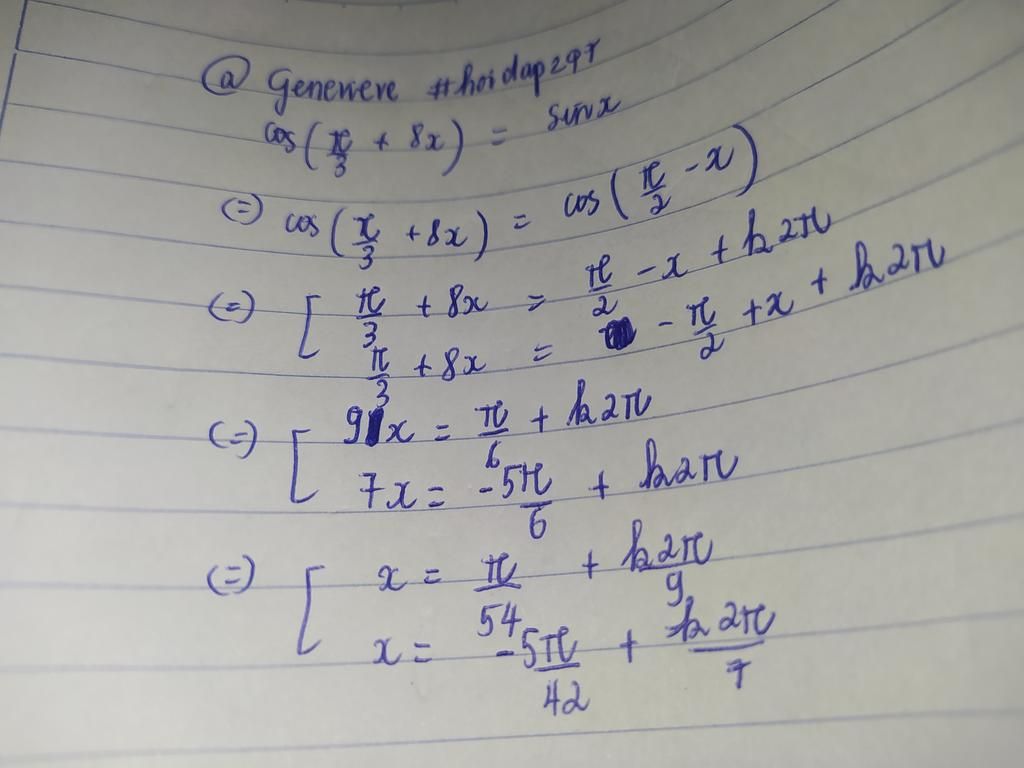 @ Genewere #hoidap247
cos(π/3 + 8x) = sinx
(=) cos(π/3 + 8x) = cos(π/2 - x)
(=) [ π/3 + 8x = π/2 - x + k2π
π/3 + 8x = - π/2 + x + k2π
(=) [ 9x = π/6 + k2π
7x = -5π/6 + k2π
(=) [ x = π/54 + k2π/9
x = -5π/42 + k2π/7